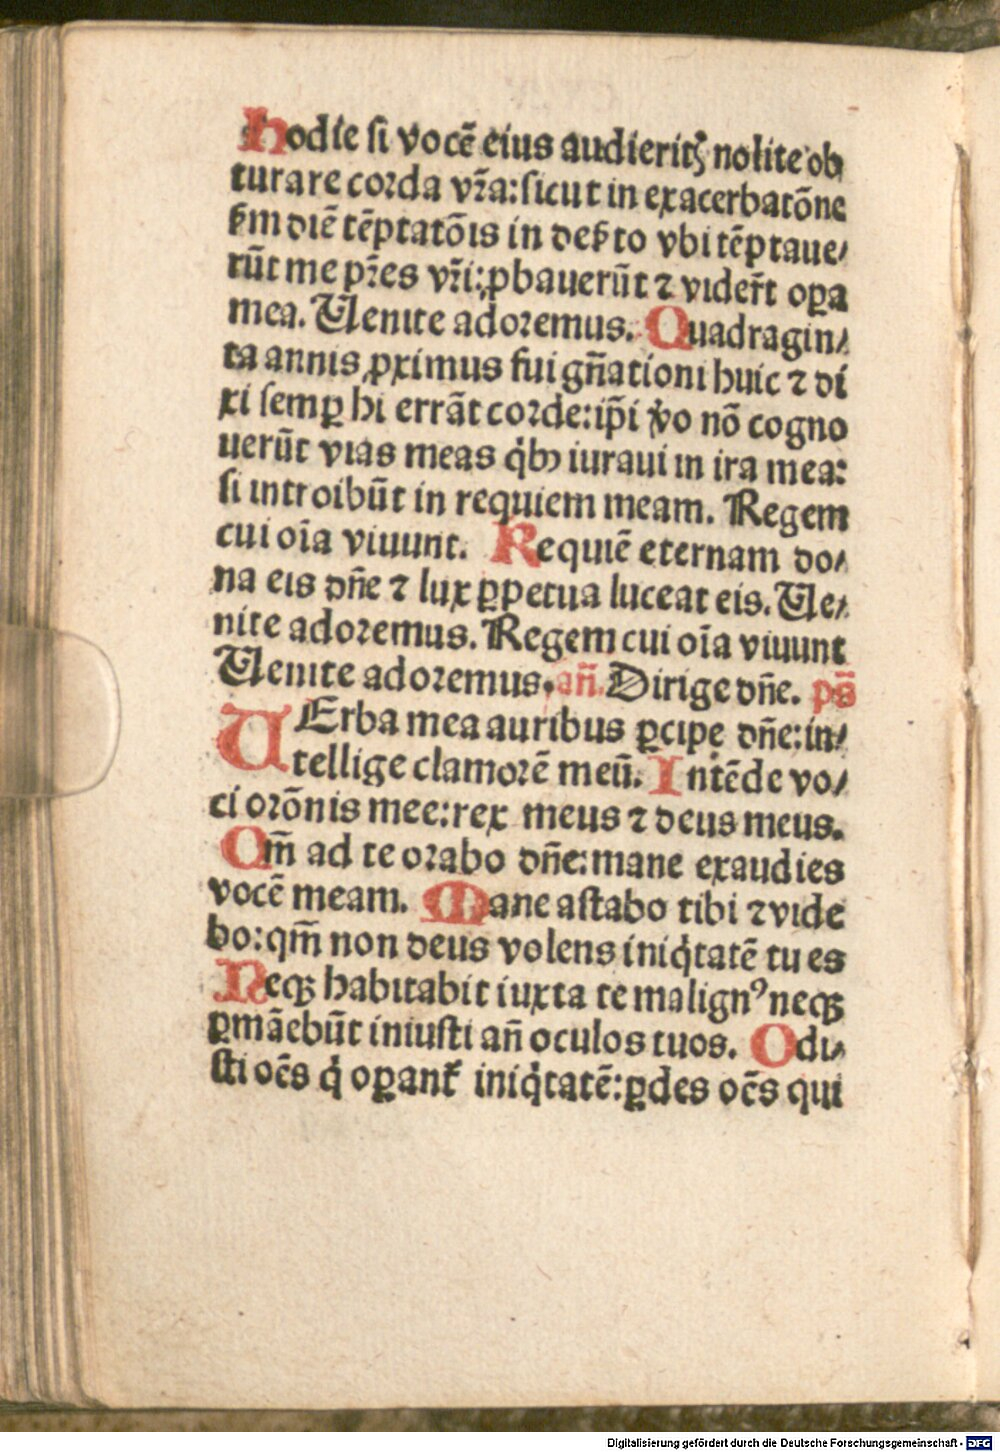 Hodie si vocē eius audieritꝭ nolite ob
turare corda vr̄a: sicut in exacerbatōne
ẜm diē tēptatōis in deẜto vbi tēptaue⸗
rūt me pr̄es vr̄i: ꝓbauerūt ⁊ vider̄t oꝑa
mea. Uenite adoremus. Quadragin⸗
ta annis ꝓximus fui gn̄ationi huic ⁊ di
xi semꝑ hi errāt corde: ip̄i v̊o nō cogno
uerūt vias meas q̇bꝫ iuraui in ira mea:
si introibūt in requiem meam. Regem
cui oīa viuunt. Requiē eternam do⸗
na eis dn̄e ⁊ lux ꝑpetua luceat eis. Ue⸗
nite adoremus. Regem cui oīa viuunt
Uenite adoremus. an̄. Dirige dn̄e. ps̄
UErba mea auribus ꝑcipe dn̄e: in⸗
tellige clamorē meū. Intēde vo⸗
ci orōnis mee: rex meus ⁊ deus meus.
Qm̄ ad te orabo dn̄e: mane exaudies
vocē meam. Mane astabo tibi ⁊ vide
bo: qm̄ non deus volens iniq̇tatē tu es
Neqꝫ habitabit iuxta te malignꝰ neqꝫ
ꝑmāebūt iniusti an̄ oculos tuos. Odi⸗
sti oēs q̇ oꝑant᷑ iniq̇tatē: ꝑdes oēs qui
Digitalisierung gefördert durch die Deutsche Forschungsgemeinschaft - DFG